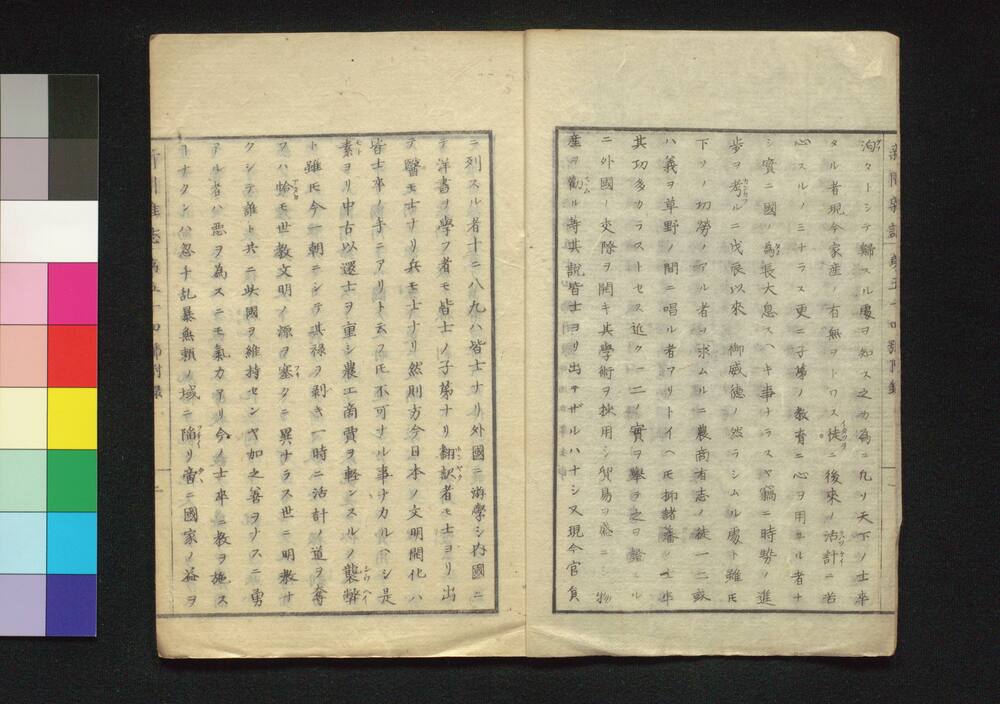 洶々トシテ歸スル處ヲ知ス之カ為ニ凡リ天下ノ士卒
タル者現今家産ノ有無ヲトロス徒ニ後來ノ活計ニ苦
心スルノミナラス更ニ子弟ノ教育ニ心ヲ用ユル者ナ
シ實ニ國ノ為長大息スヘキ事ナラスヤ竊ニ時勢ノ進
歩ヲ考ルニ戊辰以來 御威德ノ然ラシムル處ト雖𪜈
下ソノ功勞ノアル者ヲ求ムルニ農商有志ノ徒一二或
ハ義ヲ草野ノ間ニ唱ル者アリトイヘ𪜈抑諸藩ノ士卒
其功多カラストセス近ク一二ノ實ヲ舉ラ之ヲ證スル
ニ外國ノ交際ヲ開キ其學術ヲ採用シ貿易ヲ盛ニシ物
産ヲ勸ル等其説皆士ヨリ出テザルハナシ又現今官員
ニ列スル者十ニ八九ハ皆士ナリ外國ニ游學シ内國ニ
テ洋書ヲ學フ者モ皆士ノ子弟ナリ翻訳者モ士ヨリ出
テ醫モ士ナリ兵モ士ナリ然則方今日本ノ文明開化ハ
皆士卒ノ手ニアリト云フ𪜈不可ナル事ナカルヘシ是
素ヨリ中古以還士ヲ重シ農工商賈ヲ軽ンスルノ襲弊
ト雖𪜈今一朝ニシテ其禄ヲ剥キ一時ニ活計ノ道ヲ奪
フハ恰モ世教文明ノ源ヲ塞クニ異ナラス世ニ明教ナ
クシテ誰ト共ニ此國ヲ維持センヤ加之善ヲナスニ勇
アル者ハ惡ヲ為スニモ氣力アリ今ノ士卒ニ教ヲ施ス
ナクンハ忽チ乱暴無頼ノ域ニ陥リ啻ニ國家ノ益ヲ